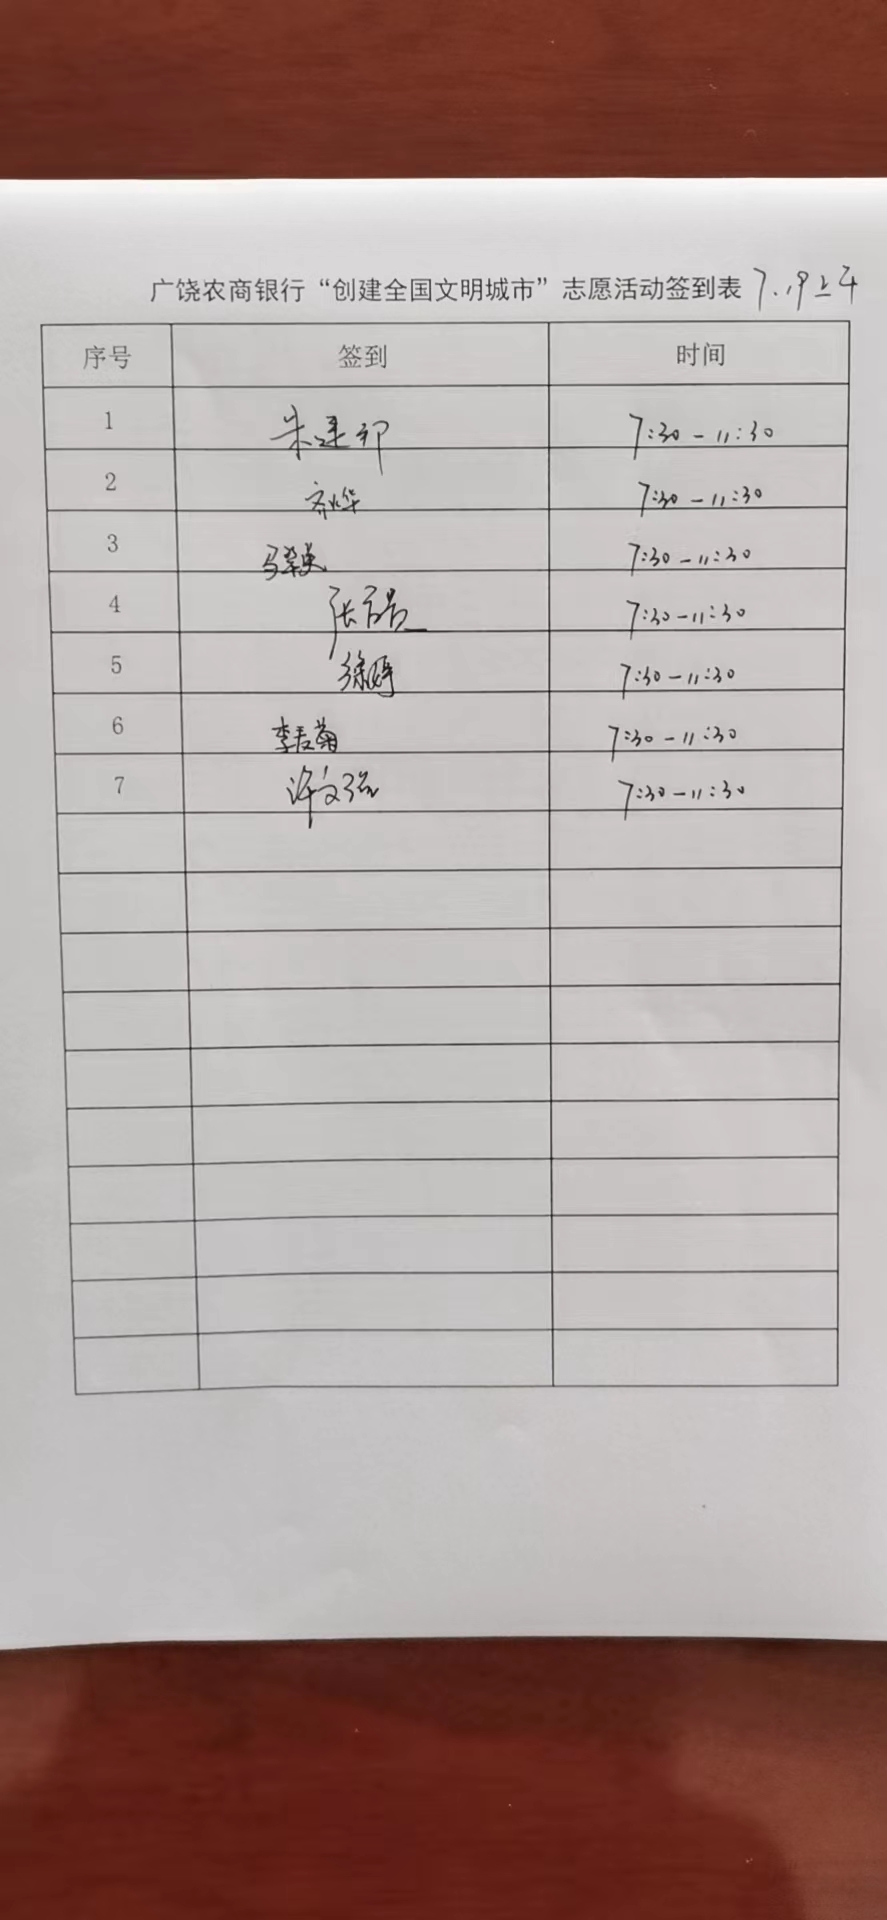 广饶农商银行“创建全国文明城市”志愿活动签到表 7.19上午
序号 签到 时间
1 朱建 7:30-11:30
2 齐华 7:30-11:30
3 马 7:30-11:30
4 张 7:30-11:30
5 徐婷 7:30-11:30
6 李君菊 7:30-11:30
7 许文强 7:30-11:30